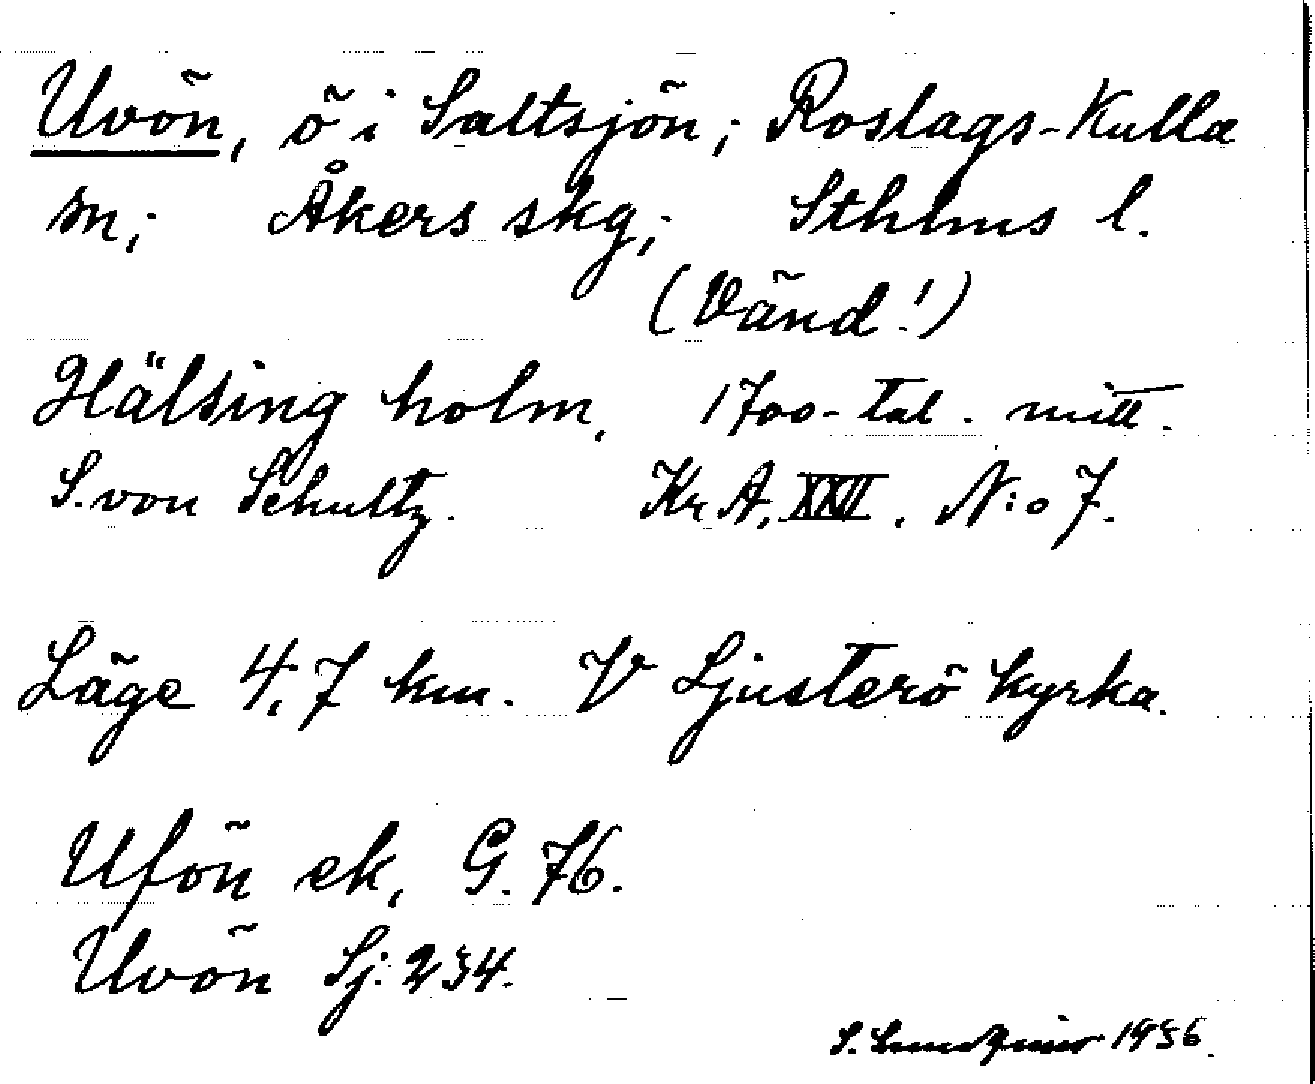 Uvön, ö i Saltsjön; Roslags-Kulla
sn; Åkers skg; Sthlms l.
(Vänd!)
Hälsing holm. 1700-tal. mitt.
S. von Schultz. Kr A. XXVI. N:o 7.
Läge 4,7 km. V Ljusterö kyrka.
Ufön ek, G. 76.
Uvön Sj: 234.
S. 1936.